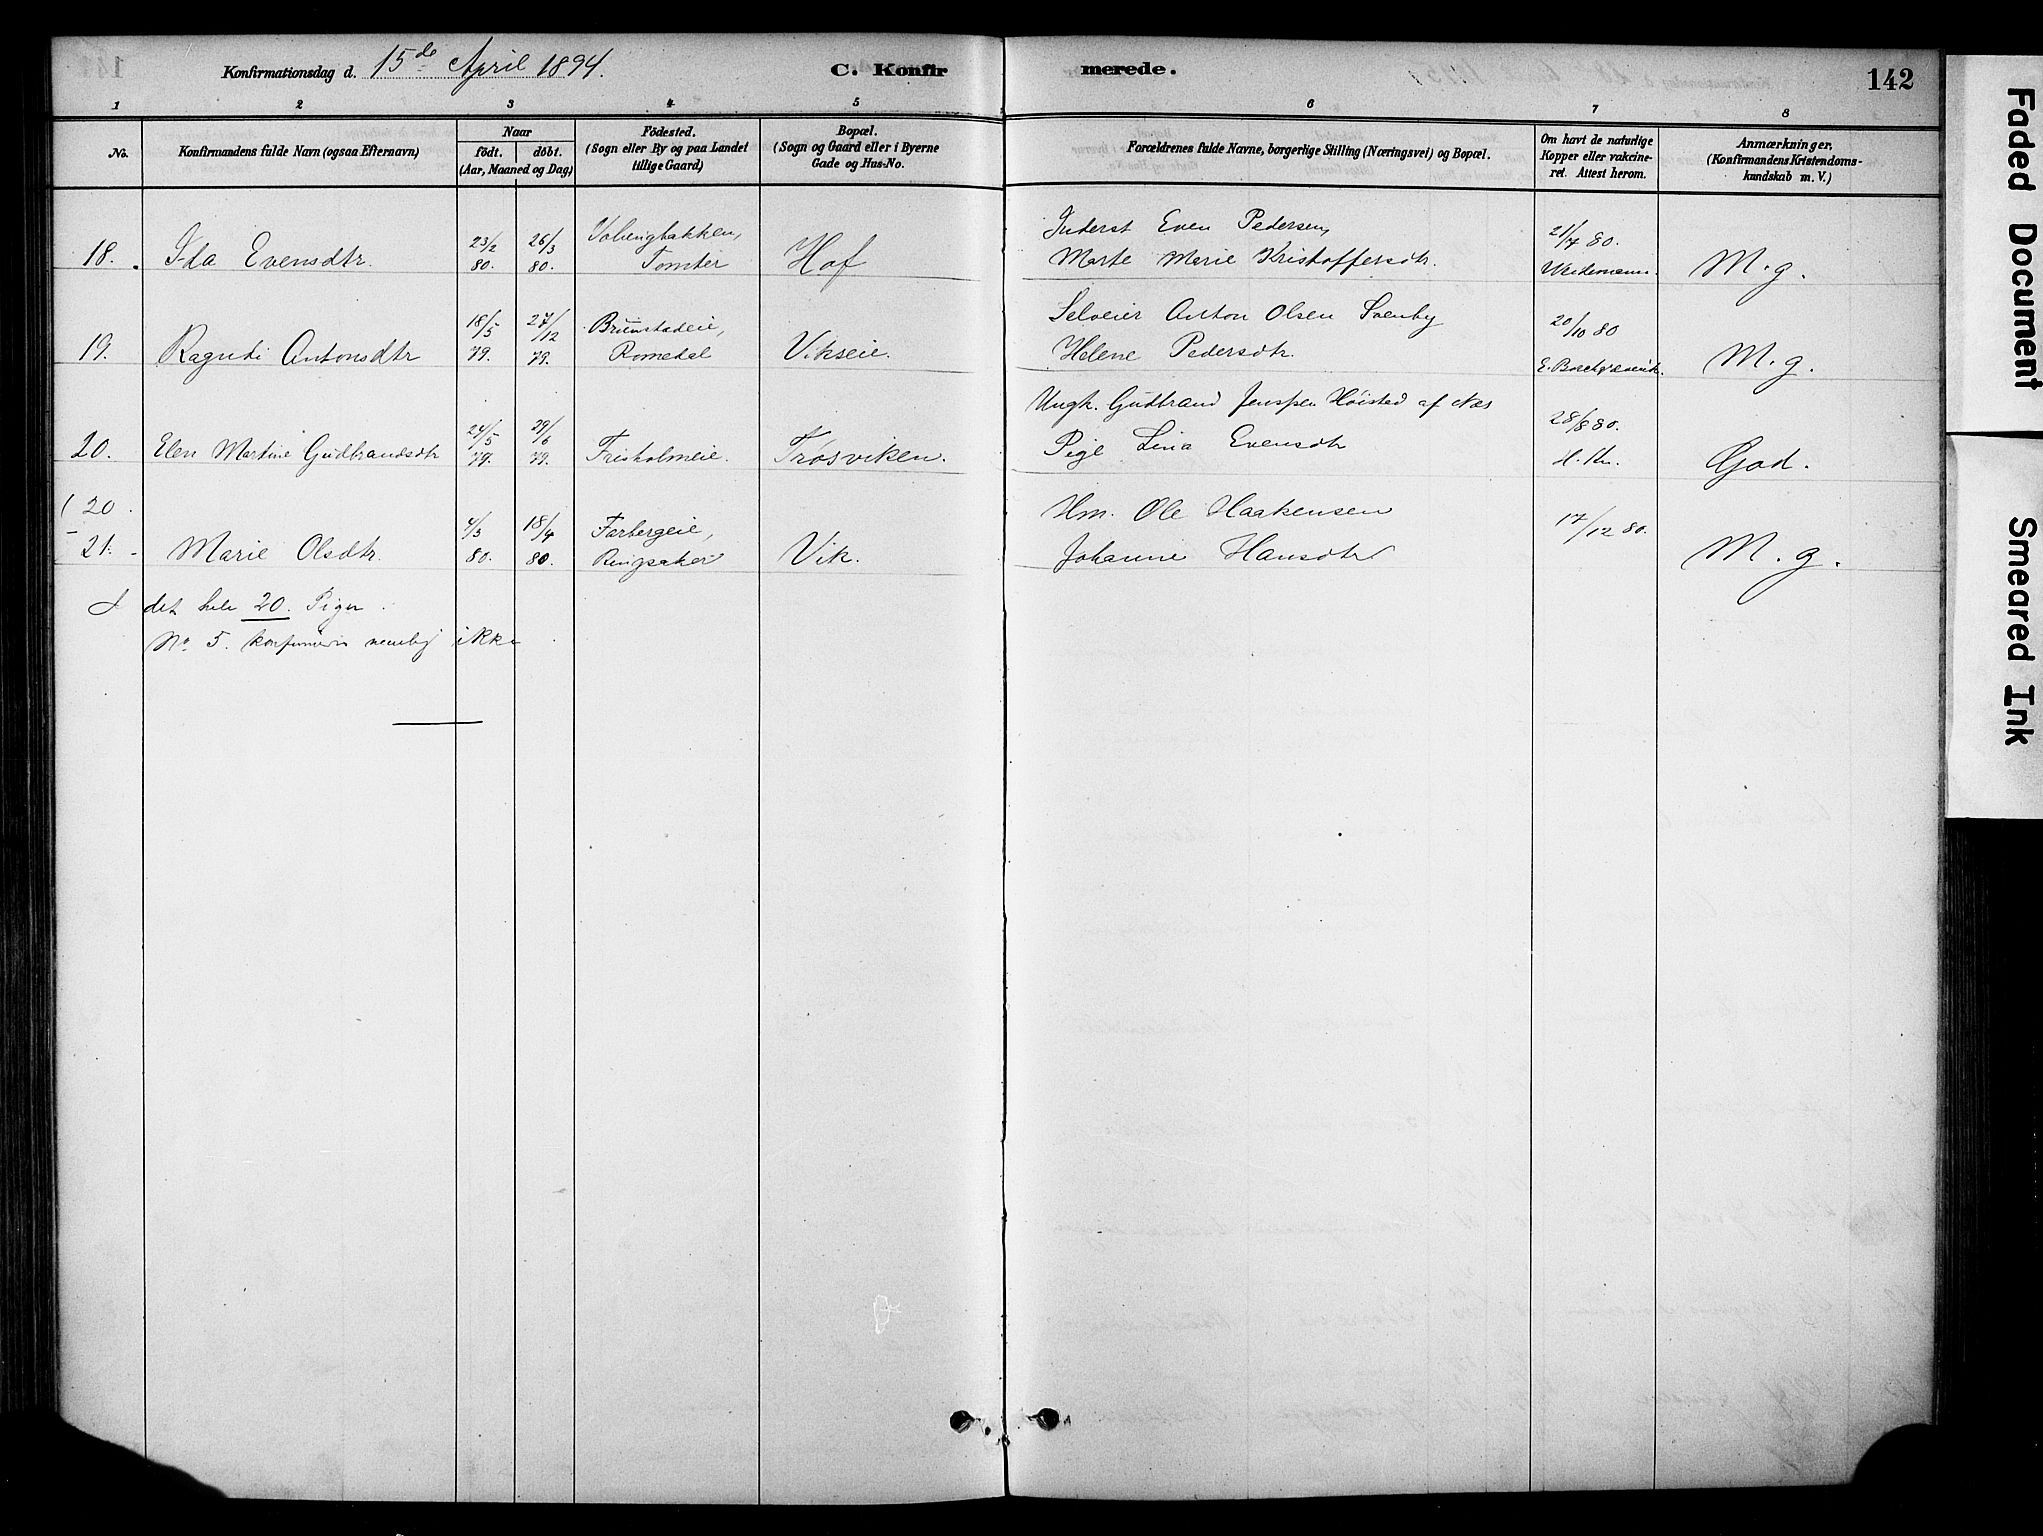 Konfirmationsdag d. 15de April 1894.
C. Konfirmerede.
142
1 2 3 4 5 6 7 8
No.
Konfirmandens fulde Navn (ogsaa Efternavn)
Naar
födt. döbt.
(Aar, Maaned og Dag)
Födested.
(Sogn eller By og paa Landet
tillige Gaard)
Bopæl.
(Sogn og Gaard eller i Byerne
Gade og Hus-No.
Forældrenes fulde Navne, borgerlige Stilling (Næringsvei) og Bopæl.
Om havt de naturlige
Kopper eller vakcine-
ret. Attest herom.
Anmærkninger.
(Konfirmandens Kristendoms-
kundskab m. V.)
23/2 26/3 Inderst Even Pedersen, 21/7 80.
18. Ida Evensdtr. 80. 80. Tomter Hof Marte Marie Kristoffersdtr. M. g.
18/5 27/12 Brunstadeie, Selveier Anton Olsen Svenby 20/10 80
19. Ragndi Antonsdtr 79. 79. Romedal Vikseie. Helene Pedersdtr. M. g.
24/5 29/6 Ungk. Gudbrand Jenssen Höisted af Næs 28/8 80.
20. Elen Martine Gudbrandsdtr 79. 79. Frisholmeie. Trosviken. Pige Lina Evensdtr God.
(20.
4/3 18/4 Farbergeie, Hm. Ole Haakensen 17/12 80.
21. Marie Olsdtr. 80. 80. Ringsaker Vik. Johanne Hansdtr M. g.
I det hele 20. Piger.
No. 5. konfirmeres nemlig ikke
Faded Document
Smeared Ink